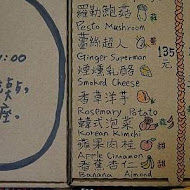 羅勒鮑菇
Pesto Mushroom
薑絲超人
Ginger Superman
煙燻乳酪
Smoked Cheese
香草洋芋
Rosemary Potato
韓式泡菜
Korean Kimchi
蘋果肉桂
Apple Cinnamon
香蕉杏仁
Banana Almond
135
元
:00